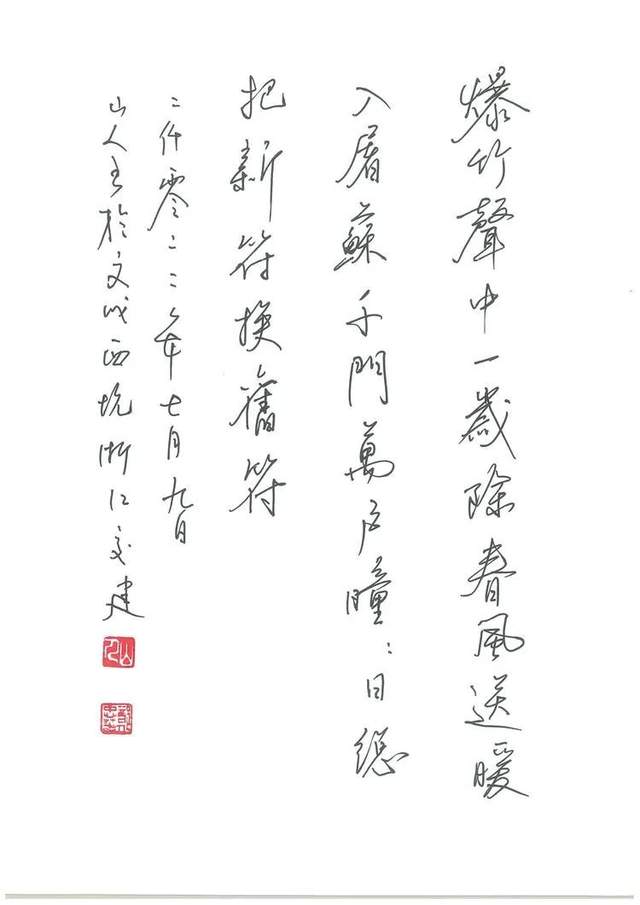 爆竹聲中一歲除春風送暖
入屠蘇千門萬戶曈:日總
把新符換舊符
二仟零二二年七月九日
山人書於文成西坑浙江交建
山人